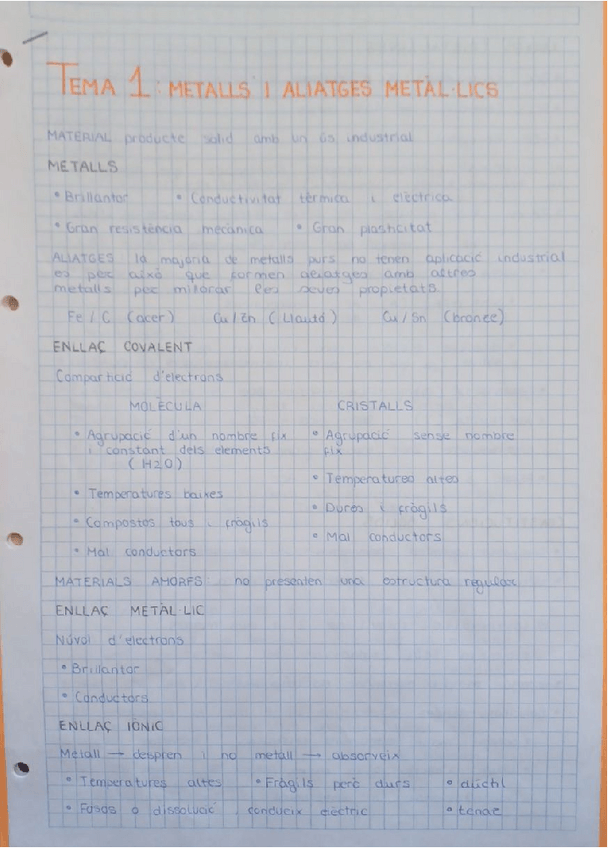 TEMA 1: METALLS I ALIATGES METÀL·LICS
MATERIAL producte solid amb un ús industrial
METALLS
• Brillantor • Conductivitat tèrmica i elèctrica
• Gran resistència mecànica • Gran plasticitat
ALIATGES la majoria de metalls purs no tenen aplicació industrial
es per això que formen aliatges amb altres
metalls per millorar les seves propietats
Fe / C (acer) Cu / Zn (Llautó) Cu / Sn (bronze)
ENLLAÇ COVALENT
Compartició d'electrons
MOLÈCULA CRISTALLS
• Agrupació d'un nombre fix • Agrupació sense nombre
i constant dels elements fix
(H2O)
• Temperatures altes
• Temperatures baixes
• Duros i fràgils
• Compostos tous i fràgils
• Mal conductors
• Mal conductors
MATERIALS AMORFS no presenten una estructura regular
ENLLAÇ METÀL·LIC
Núvol d'electrons
• Brillantor
• Conductors
ENLLAÇ IÒNIC
Metall → despren i no metall → absorveix
• Temperatures altes • Fràgils però durs • dúctil
• Fosos o dissolució condueix elèctric • tenaç